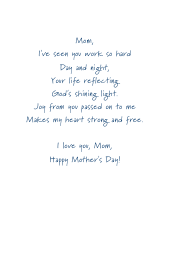 Mom,
I've seen you work so hard
Day and night,
Your life reflecting,
God's shining light.
Joy from you passed on to me
Makes my heart strong and free.
I love you, Mom,
Happy Mother's Day!